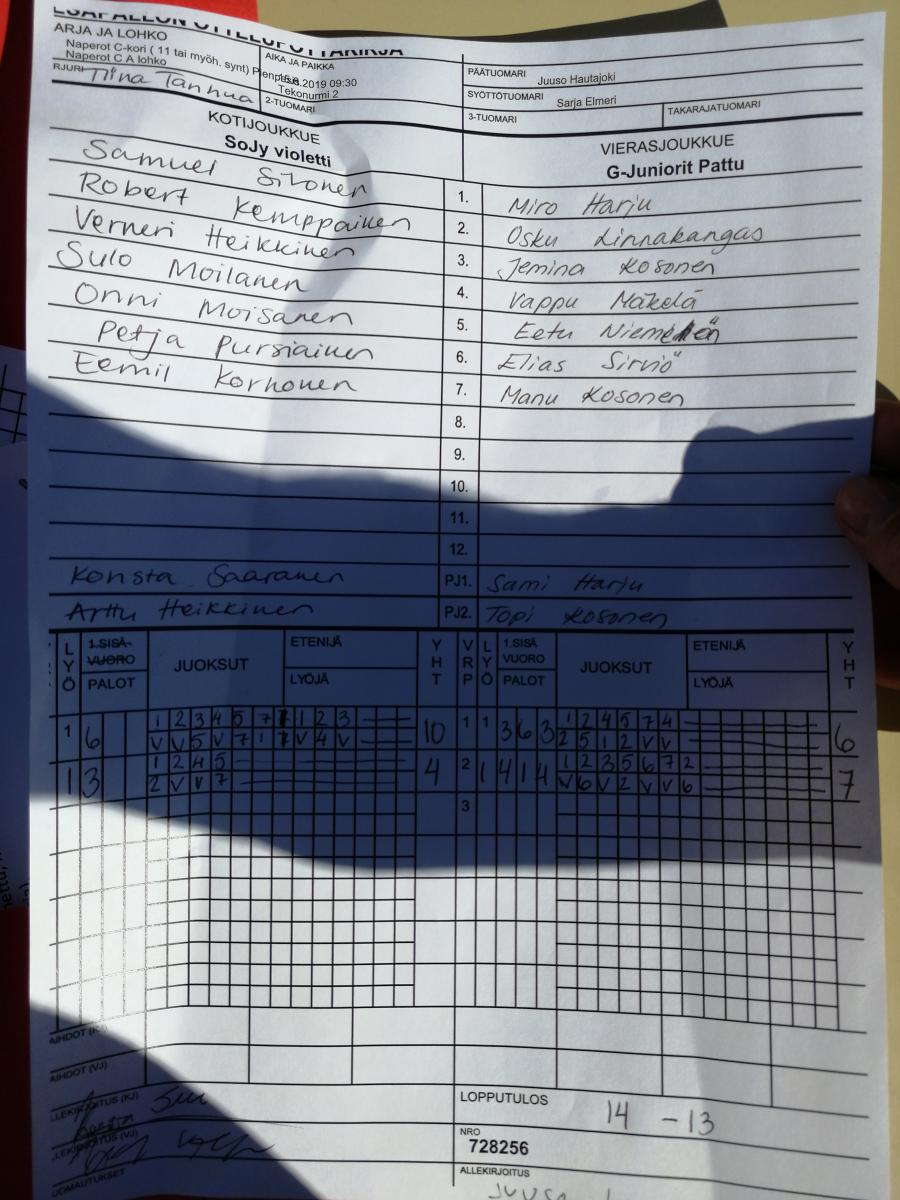 ESÄPALLON OTTELUPÖYTÄKIRJA
ARJA JA LOHKO
Naperot C-kori ( 11 tai myöh. synt) Pienpesis
Naperot C A lohko
AIKA JA PAIKKA
15.6.2019 09:30
Tekonurmi 2
PÄÄTUOMARI Juuso Hautajoki
RJURI Tiina Tanhua
2-TUOMARI
SYÖTTÖTUOMARI Sarja Elmeri
3-TUOMARI TAKARAJATUOMARI
KOTIJOUKKUE
SoJy violetti
VIERASJOUKKUE
G-Juniorit Pattu
Samuel Silonen 1. Miro Harju
Robert Kemppainen 2. Osku Linnakangas
Verneri Heikkinen 3. Jemina Kosonen
Sulo Moilanen 4. Vappu Mäkelä
Onni Moisanen 5. Eetu
Petja Pursiainen 6. Elias Sirviö
Eemil Korhonen 7. Manu Kosonen
8.
9.
10.
11.
12.
Konsta Saaranen PJ1. Sami Harju
Arttu Heikkinen PJ2. Topi Kosonen
LYÖ 1.SISÄ-VUORO PALOT JUOKSUT ETENIJÄ LYÖJÄ YHT VRP LYÖ 1.SISÄ VUORO PALOT JUOKSUT ETENIJÄ LYÖJÄ YHT
1 6 1 2 3 4 5 7 1 2 3 10 1 1 3 6 3 1 2 4 5 7 4 6
V V 5 V 7 1 V 4 V 2 5 1 2 V V
1 3 1 2 4 5 4 2 1 4 1 4 1 2 3 5 6 7 2 7
2 V V 7 V 6 V 2 V V 6
3
AIHDOT (KJ)
AIHDOT (VJ)
LLEKIRJOITUS (KJ)
LOPPUTULOS 14 - 13
LLEKIRJOITUS (VJ)
NRO
728256
UOMAUTUKSET
ALLEKIRJOITUS